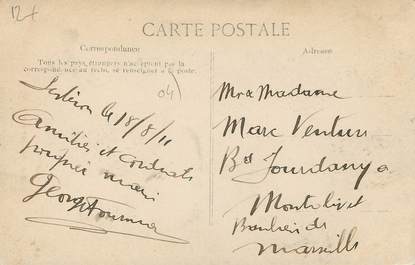 12+
CARTE POSTALE
Correspondance
Adresse
Tous les pays étrangers n'acceptent pas la
correspondance au recto, se renseigner à la poste.
04
le 18/8/11
Amitiés et
Georges
Mr & Madame
Marc Venture
Bd Jourdan
Montolivet
Banlieue de
Marseille